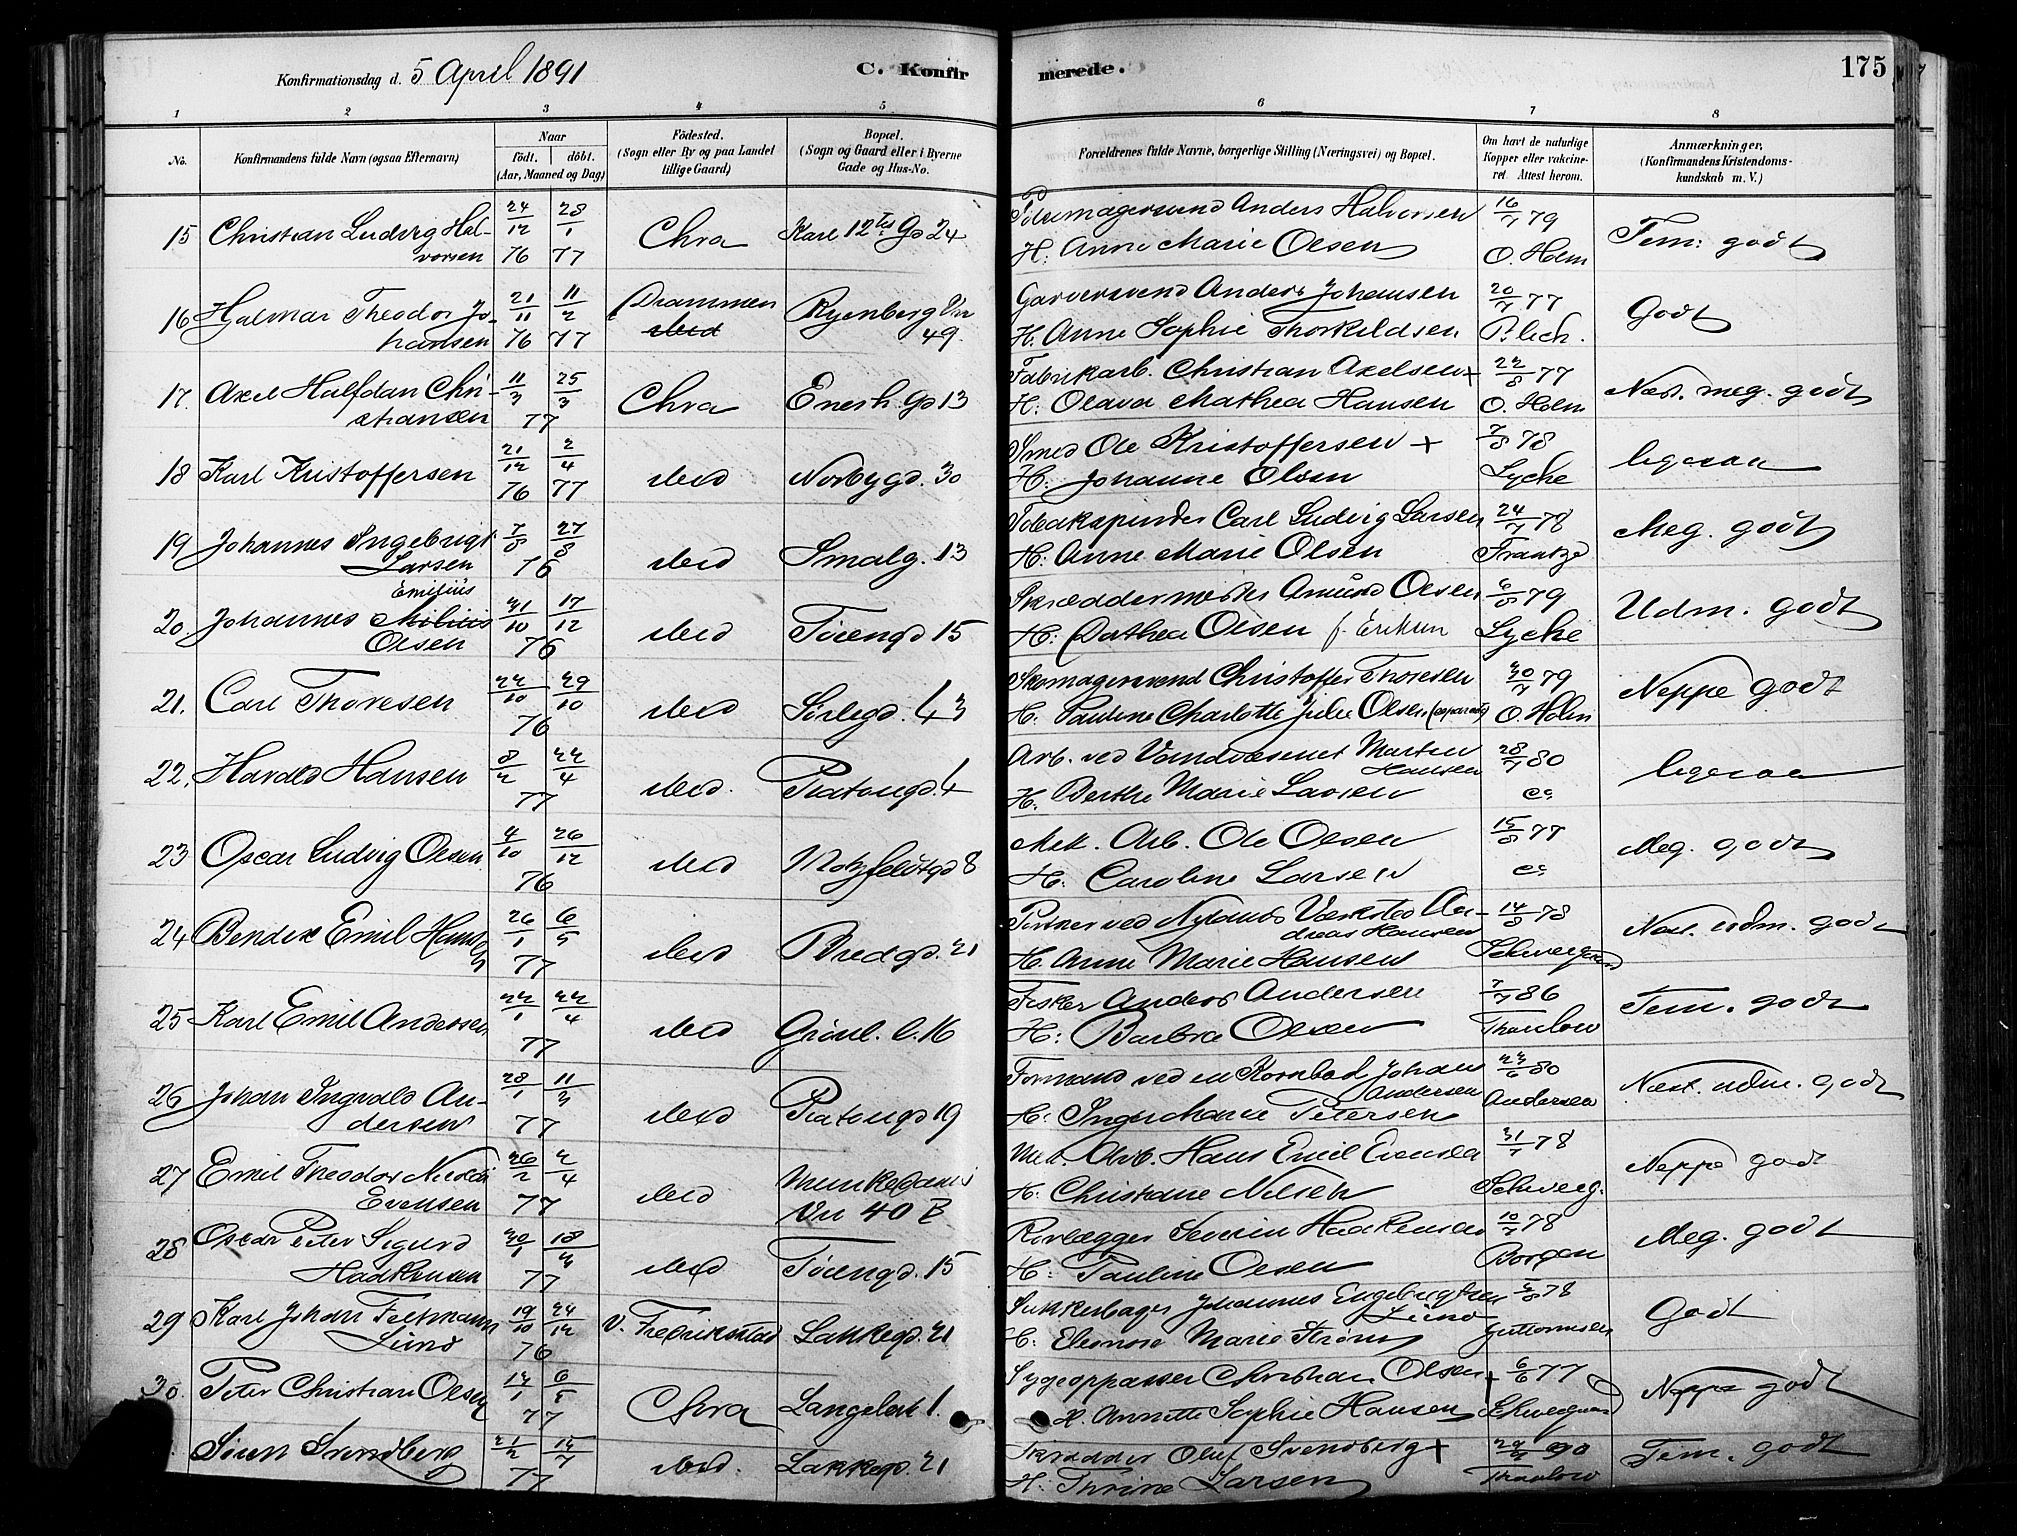 Konfirmationsdag d. 5 April 1891
C. Konfir
merede.
175
1 2 3 4 5 6 7 8
No.
Konfirmandens fulde Navn (ogsaa Efternavn)
Naar
födt. döbt.
(Aar, Maaned og Dag)
Födested.
(Sogn eller By og paa Landet
tillige Gaard)
Bopæl.
(Sogn og Gaard eller i Byerne
Gade og Hus-No.
Forældrenes fulde Navne, borgerlige Stilling (Næringsvei) og Bopæl.
Om havt de naturlige
Kopper eller vakcine-
ret. Attest herom.
Anmærkninger.
(Konfirmandens Kristendoms-
kundskab m. V.)
15 Christian Ludvig Hal-
vorsen
24/12 76 28/1 77
Chra
Karl 12tes Gd 24
Anders Halvorsen
H: Anne Marie Olsen
16/7 79
O. Holm
Tem: godt
16 Hjalmar Theodor Jo-
hansen
21/11 76 11/2 77
Drammen
ibid
Ryenberg Vn
49.
Garversvend Anders Johansen
H. Anne Sophie Thorkildsen
20/7 77
Blich.
Godt
17. Axel Halfdan Chri-
stiansen
11/3 25/3
77
Chra
Enerh. Gd 13
Fabrikarb. Christian Axelsen +
H: Olava Mathea Hansen
22/8 77
O. Holm
Næst. meg. godt
18 Karl Kristoffersen
21/12 76 2/4 77
ibid
Norbygd. 30
Smed Ole Kristoffersen +
H: Johanne Olsen
7/8 78
Lyche
ligesaa
19 Johannes Ingebrigt
Larsen
7/8 27/8
76
ibid
Smalg. 13
Tobakspinder Carl Ludvig Larsen
H: Anne Marie Olsen
24/7 78
Frantze
Meg. godt
Emilius
20 Johannes Milius
Olsen
31/10 17/12
76
ibid
Töiengd 15
Skræddermester Amund Olsen
H: Dorthea Olsen f. Eriksen
6/8 79
Lyche
Udm. godt
21. Carl Thoresen
22/10 29/10
76
ibid
Sörlegd. 43
Skomagersvend Christoffer Thoresen
H. Pauline Charlotte Julie Olsen (separert)
30/7 79
O. Holm
Neppe godt
22. Harald Hansen
8/2 22/4
77
ibid.
Platougd. 4
Arb. ved Vandvæsenet Martin
Hansen
H. Berthe Marie Larsen
28/7 80
ligesaa
23 Oscar Ludvig Olsen
4/10 26/12
76
ibid
Motzfeldtgd 8
Mek. Arb. Ole Olsen
H. Caroline Larsen
15/8 77
Meg. godt
24 Bendix Emil Hansen
26/1 6/5
77
ibid
Bredgd. 21
Portner ved Nylands Værksted An-
dreas Hansen
H. Anne Marie Hansen
14/8 78
Næst. udm. godt
25 Karl Emil Andersen
22/1 22/4
77
ibid
Grönl. l. 16
Fisker Anders Andersen
H: Barbra Olsen
7/7 86
Thaulow
Tem. godt
26 Johan Ingvald An-
dersen
28/1 11/3
77
ibid
Platougd 19
Formand ved en Kornbod Johan
Andersen
H: Inger Marie Petersen
23/6 80
Andersen
Næst. udm. godt
27 Emil Theodor Nicolai
Evensen
26/2 2/4
77
ibid
Munkedams
Vn 40 B
Mek. Arb. Hans Emil Evensen
H. Christiane Nilsen
31/7 78
Schweg.
Neppe godt
28 Oscar Peter Sigurd
Haakensen
30/1 18/3
77
ibid
Töiengd. 15
Rörlægger Severin Haakensen
H: Pauline Olsen
10/7 78
Borgen
Meg. godt
29 Karl Johan Feltmann
Lund
19/10 24/12
76
V. Fredrikstad
Lakkegd. 21
Sukkerbager Johannes Engebrigtsen
Lund
H. Eleonore Marie Ström
78
Guttormsen
Godt
30. Peter Christian Olsen
14/1 6/5
77
Chra
Langelett 1.
Sygeoppasser Christian Olsen +
H. Annette Sophie Hansen
6/6 77
Neppe godt
Sören Svendberg
21/2 15/7
77
ibid.
Lakkegd. 21
Skrædder Oluf Svendberg +
H: Thrine Larsen
90
Thaulow
Tem. godt